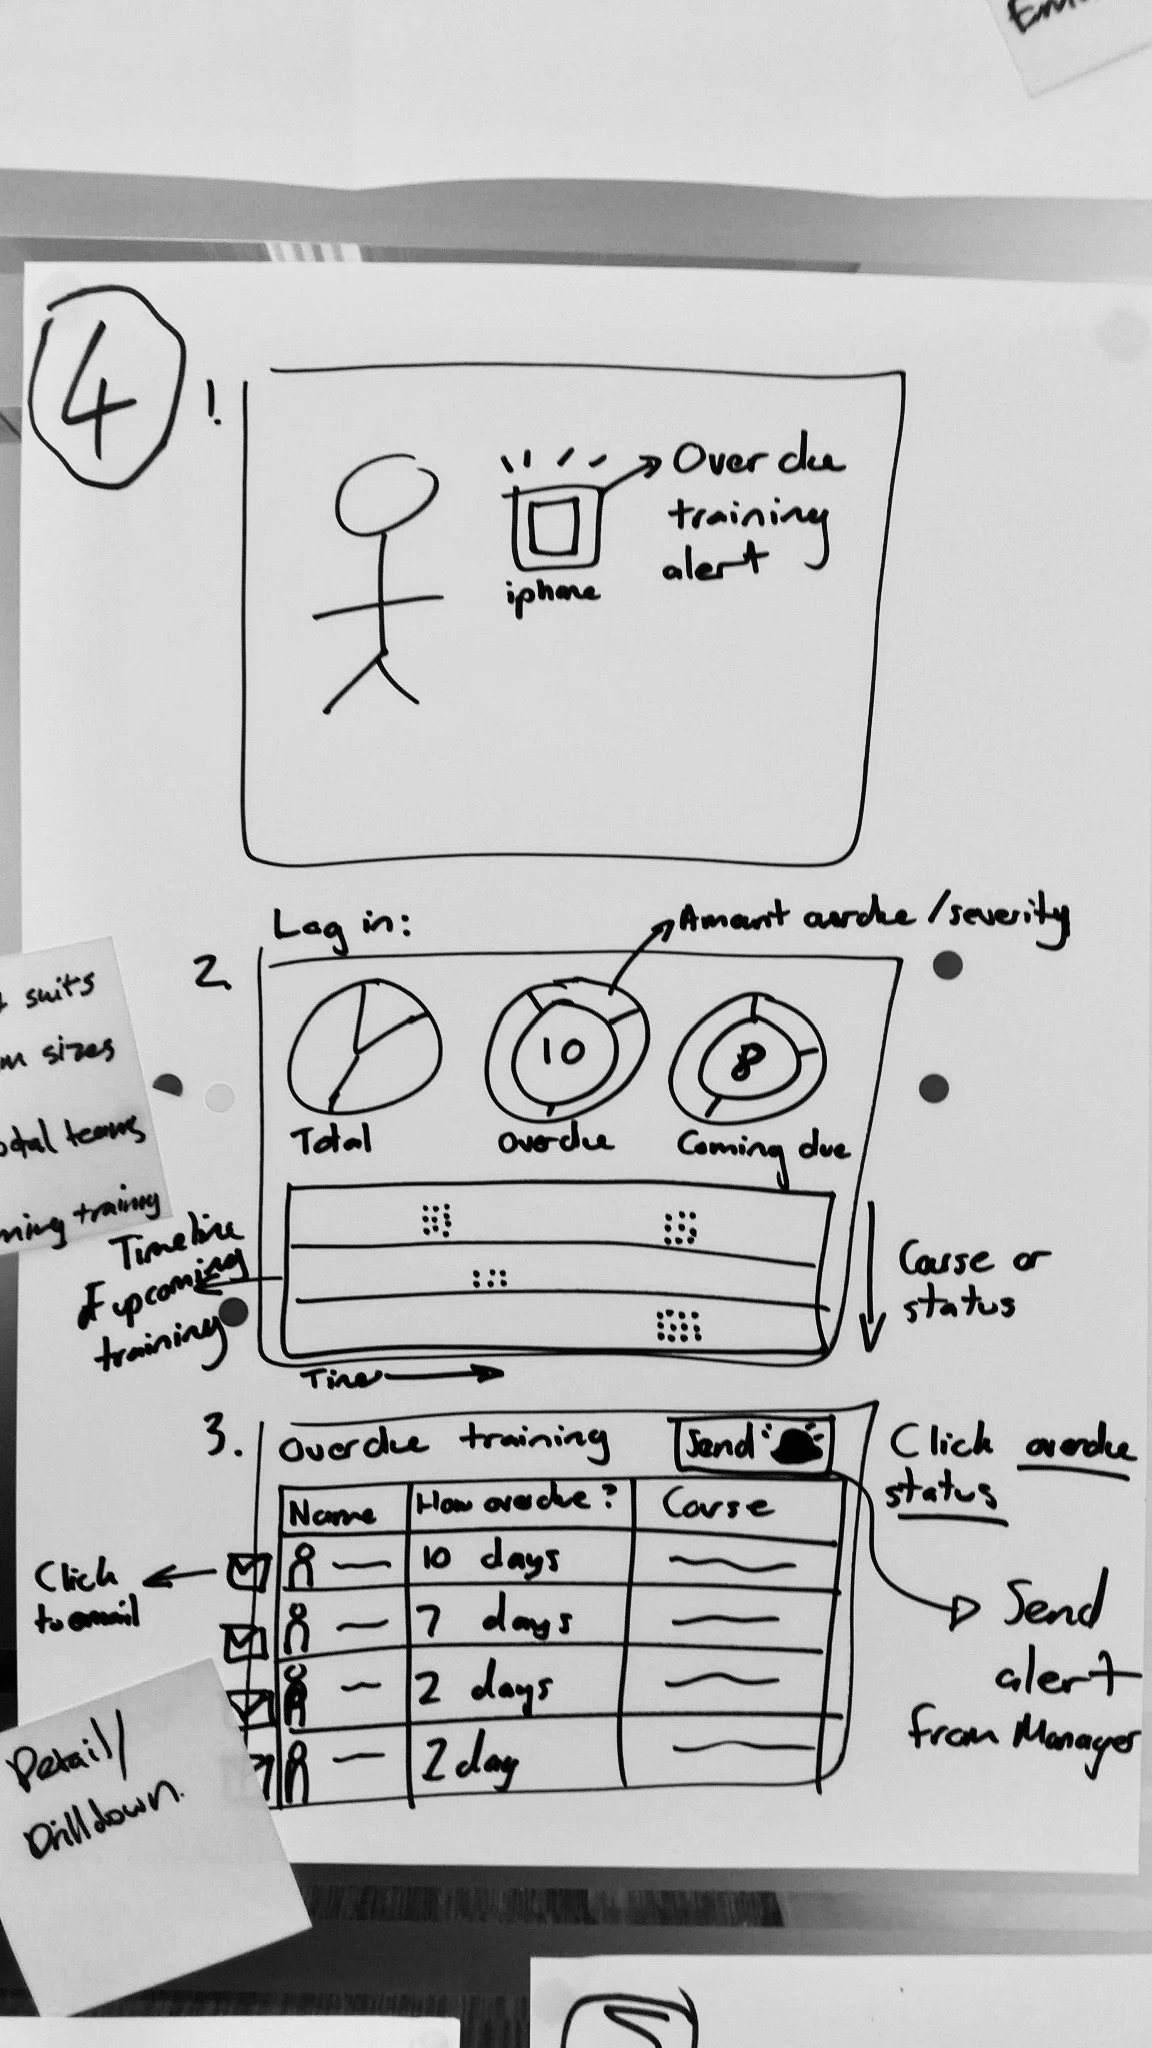 4
1.
Overdue
training
alert
iphone
Log in:
Amount overdue/severity
2.
10
8
Total
Overdue
Coming due
suits
sizes
teams
training
Timeline
of upcoming
training
Course or
status
Time
3.
Overdue training
Send
Click overdue
status
Name
How overdue?
Course
10 days
7 days
2 days
2 day
Click
to email
Send
alert
from Manager
Detail/
Drilldown.